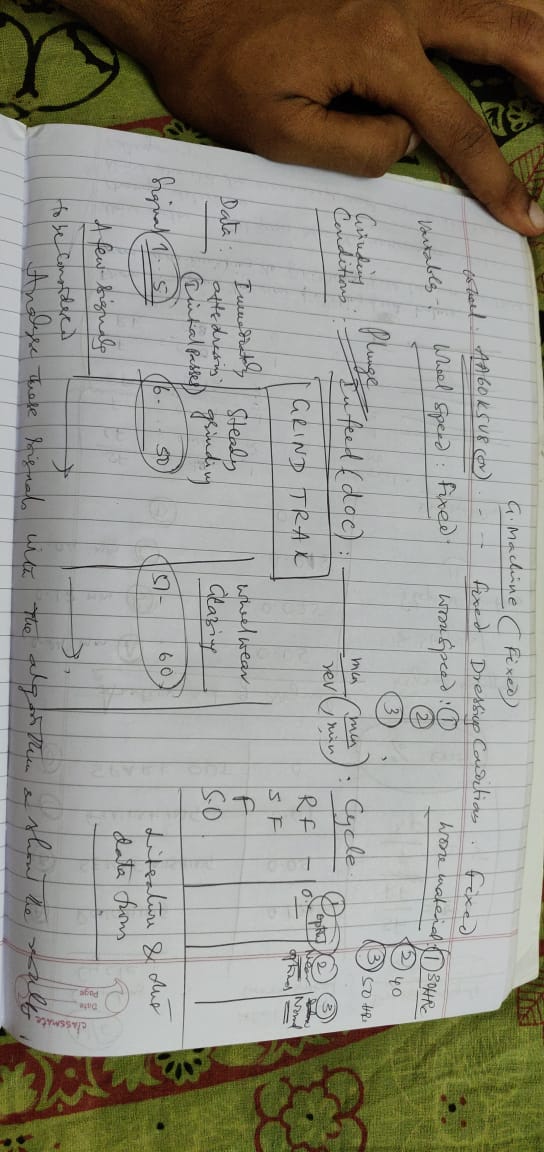 G. Machine (Fixed)
wheel: AA60K5V8 (or) . -- -- fixed Dressing Conditions. Fixed
Variables - Wheel Speed: Fixed. Work Speed: ① Work material: ① 30HRc
② ② 40
③ ③ 50 HRc
Grinding Conditions: Plunge
Infeed (doc): ______ mm/rev (mm/min) : Cycle
GRIND TRAK
① ② ③
RF -
SF
F
SO
Data: Immediately after dressing (Initial passes)
Steady grinding
wheel wear Glazing
Signal 1.. 5 6. .. 50 51- 60
Literature & our data from
A few signals to be considered
Analyse these signals with the algorithm & show the results
classmate
Date
Page